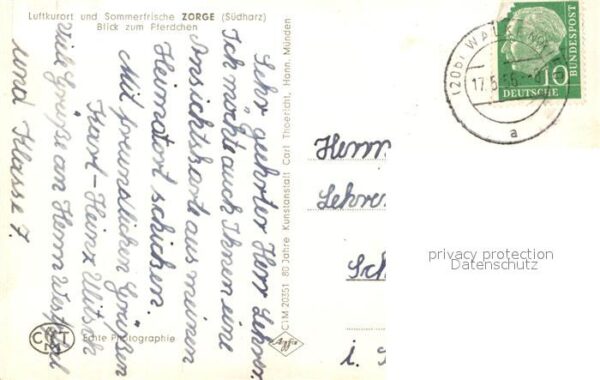 Luftkurort und Sommerfrische ZORGE (Südharz)
Blick zum Pferdchen
Sehr geehrter Herr Lehrer.
Ich möchte auch Ihnen eine
Ansichtskarte aus meinen
Heimatort schicken.
Mit freundlichen Grüßen
Karl-Heinz Witsch
Viele Grüße an Herrn
und Klasse 7.
C1M 20351 80 Jahre Kunstanstalt Carl Thoericht, Hann. Münden
Echte Photographie
Agfa
(20b) WALKENR
17.5.56
a
10
DEUTSCHE
BUNDESPOST
Herrn
Lehrer
Sch
i.
privacy protection
Datenschutz